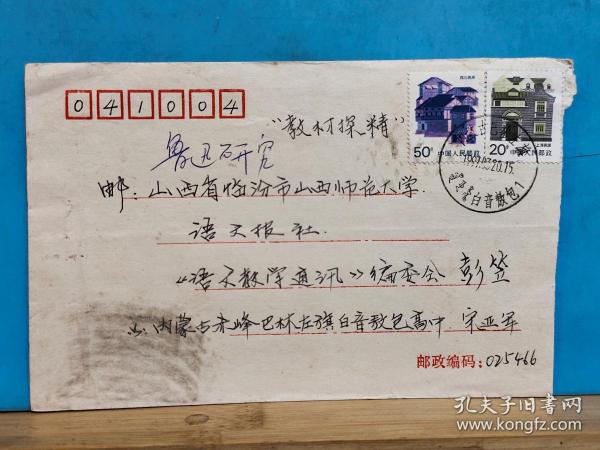 041004
“教材探精”
鲁迅研究
邮：山西省临汾市山西师范大学
语文报社
《语文教学通讯》编委会 彭笠
内蒙古赤峰巴林左旗白音敖包高中 宋亚军
邮政编码：025466
四川民居
50分 中国人民邮政
上海民居
20分 中国人民邮政
20.15
白音敖包1
孔夫子旧书网
www.kongfz.com